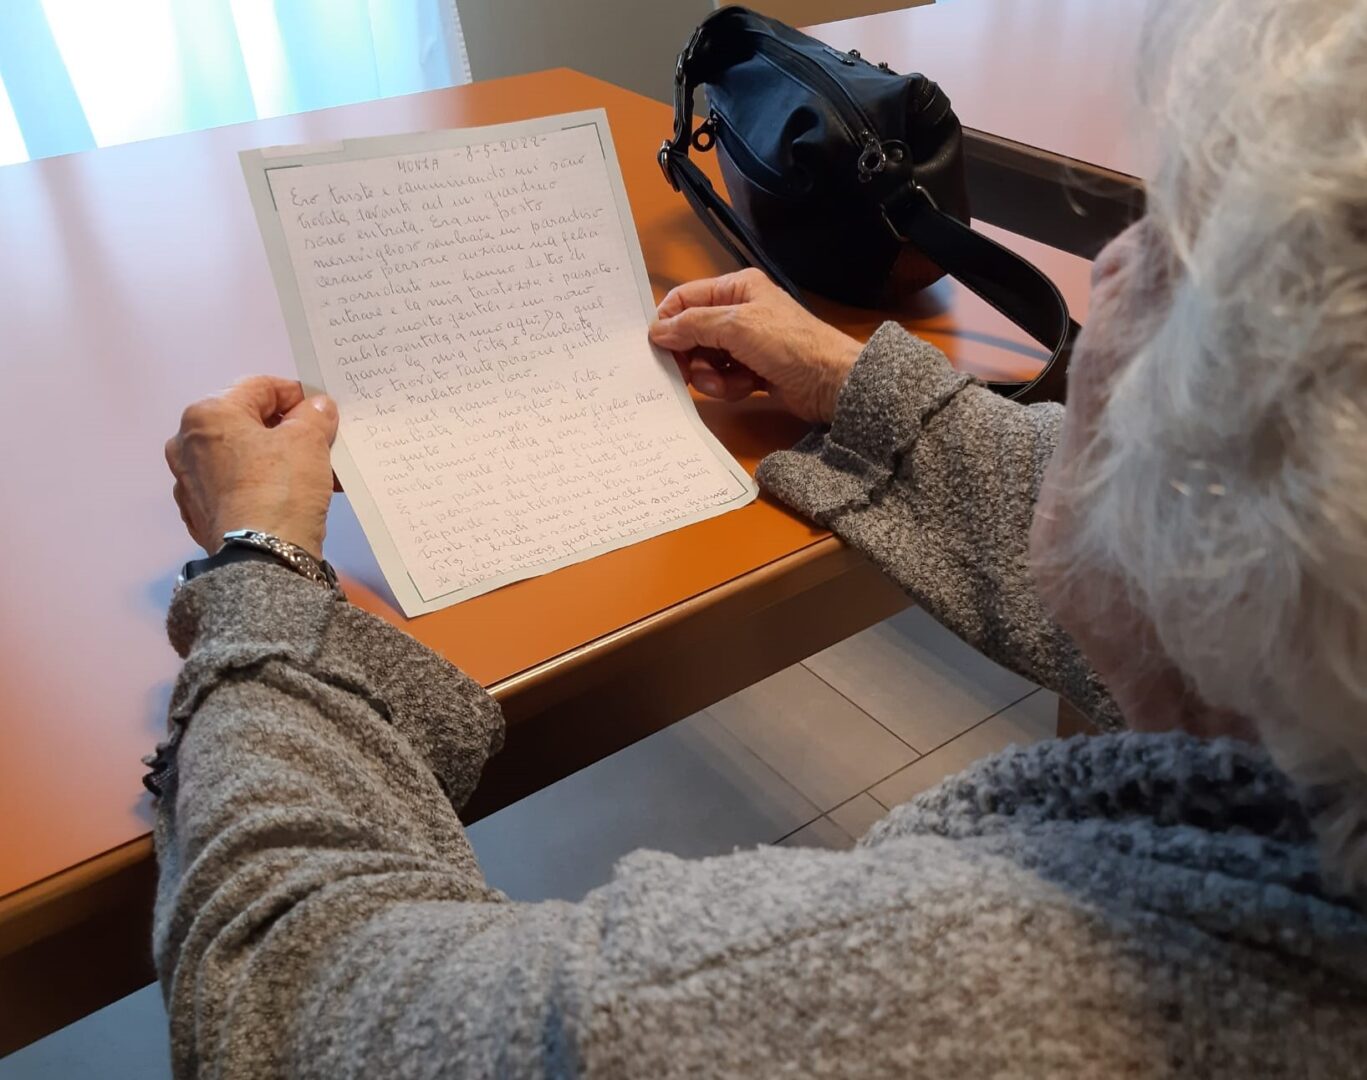 MONZA - 8-5-2022-
Ero triste e camminando mi sono
trovata davanti ad un giardino
sono entrata. Era un posto
meraviglioso sembrava un paradiso
cerano persone anziane ma felici
e sorridenti mi hanno detto di
entrare e la mia tristezza è passata.
erano molto gentili e mi sono
subito sentita a mio agio. Da quel
giorno la mia vita è cambiata
ho trovato tante persone gentili
ho parlato con loro.
Da quel giorno la mia vita è
cambiata in meglio e ho
seguito i consigli di mio figlio Paolo.
mi hanno
anchio parte di questa famiglia.
È un posto stupendo è tutto bello qui
le persone che lo dirigono sono
stupende e gentilissime. Non sono più
triste ho tanti amici e amiche la mia
vita è bella e sono contenta spero
di vivere ancora qualche anno. mi chiamo